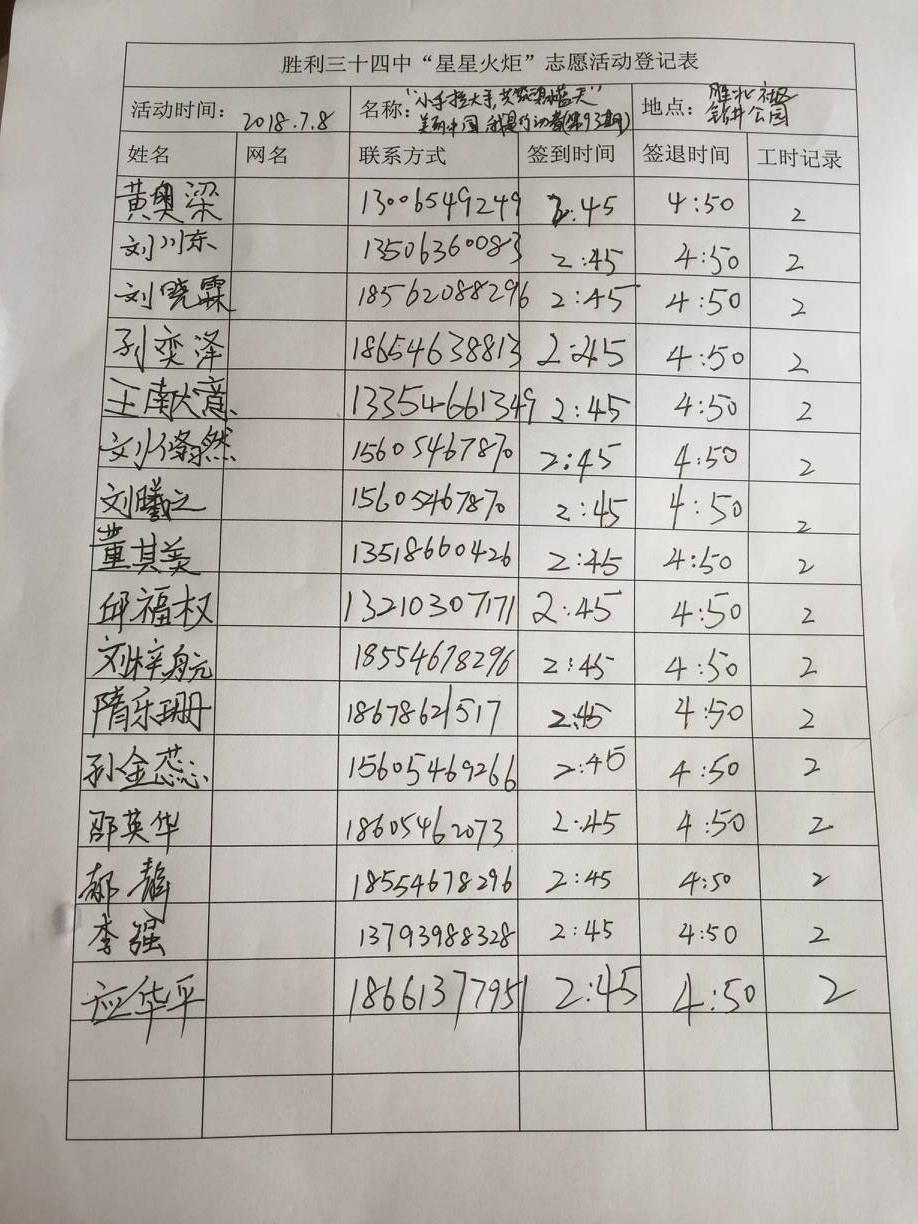 胜利三十四中“星星火炬”志愿活动登记表
活动时间: 2018.7.8 名称: “小手拉大手,共筑碧蓝天” 地点: 胜北社区
美丽中国 我是行动者(第93期) 钻井公园
姓名 网名 联系方式 签到时间 签退时间 工时记录
黄奥梁 13006549249 2:45 4:50 2
刘川东 13506360083 2:45 4:50 2
刘晓霖 18562088296 2:45 4:50 2
孙奕泽 18654638813 2:45 4:50 2
王南大意 13354661349 2:45 4:50 2
刘修然 15605467870 2:45 4:50 2
刘曦之 15605467870 2:45 4:50 2
董其美 13518660426 2:45 4:50 2
邱福权 13210307171 2:45 4:50 2
刘梓航 18554678296 2:45 4:50 2
隋乐珊 18678621517 2:45 4:50 2
孙金蕊 15605469266 2:45 4:50 2
邵英华 18605462073 2:45 4:50 2
郝靓 18554678296 2:45 4:50 2
李强 13793988328 2:45 4:50 2
应华平 18661377951 2:45 4:50 2